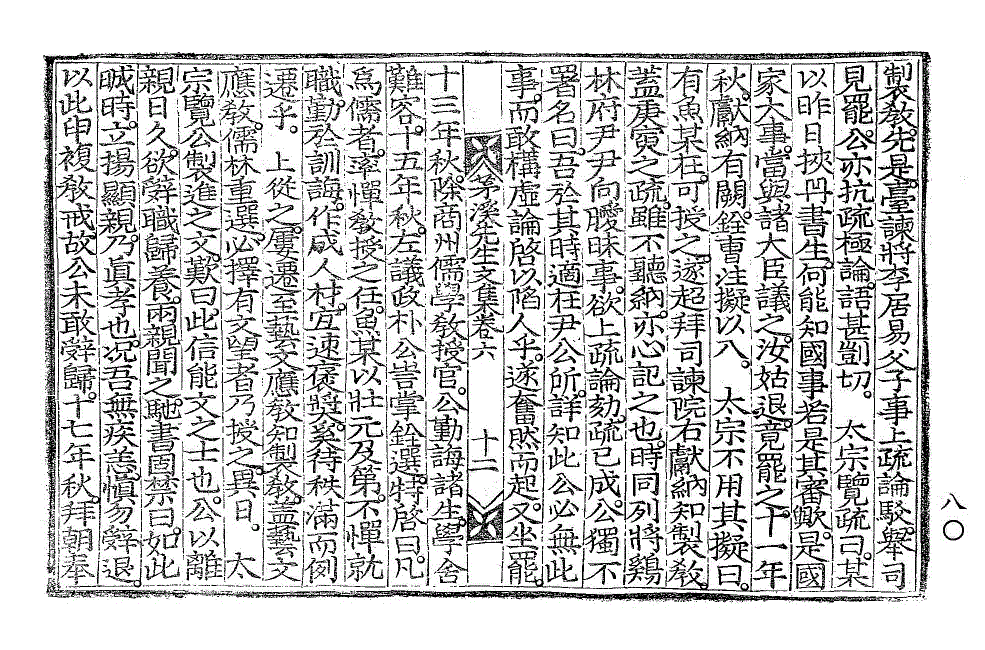 製敎。先是。臺諫將李居易父子事上疏論駁。擧司
見罷。公亦抗疏極論。語甚剴切。 太宗覽疏曰。某
以昨日挾丹書生。何能知國事若是其審歟。是國
家大事。當與諸大臣議之。汝姑退。竟罷之。十一年
秋。獻納有闕。銓曹注擬以入。 太宗不用其擬曰。
有魚某在。可授之。遂超拜司諫院右獻納知製敎。
蓋庚寅之疏。雖不聽納。亦心記之也。時同列將鷄
林府尹尹向曖昧事。欲上疏論劾。疏已成。公獨不
署名曰。吾於其時適在尹公所。詳知此公必無此
事。而敢構虛論啓以陷人乎。遂奮然而起。又坐罷。
茅溪先生文集卷六 十二
十三年秋。除商州儒學敎授官。公勤誨諸生。學舍
難容。十五年秋。左議政朴公訔掌銓選。特啓曰。凡
爲儒者。率憚敎授之任。魚某以壯元及第。不憚就
職。勤於訓誨。作成人材。宜速褒將。奚待秩滿而例
遷乎。 上從之。屢遷至藝文應敎知製敎。蓋藝文
應敎。儒林重選。必擇有文望者乃授之。異日。 太
宗覽公製進之文。歎曰。此信能文之士也。公以離
親日久。欲辭職歸養。兩親聞之。馳書固禁曰。如此
㘕時。立揚顯親。乃眞孝也。况吾無疾恙。愼勿辭退。
以此申複敎戒。故公未敢辭歸。十七年秋。拜朝奉
八〇